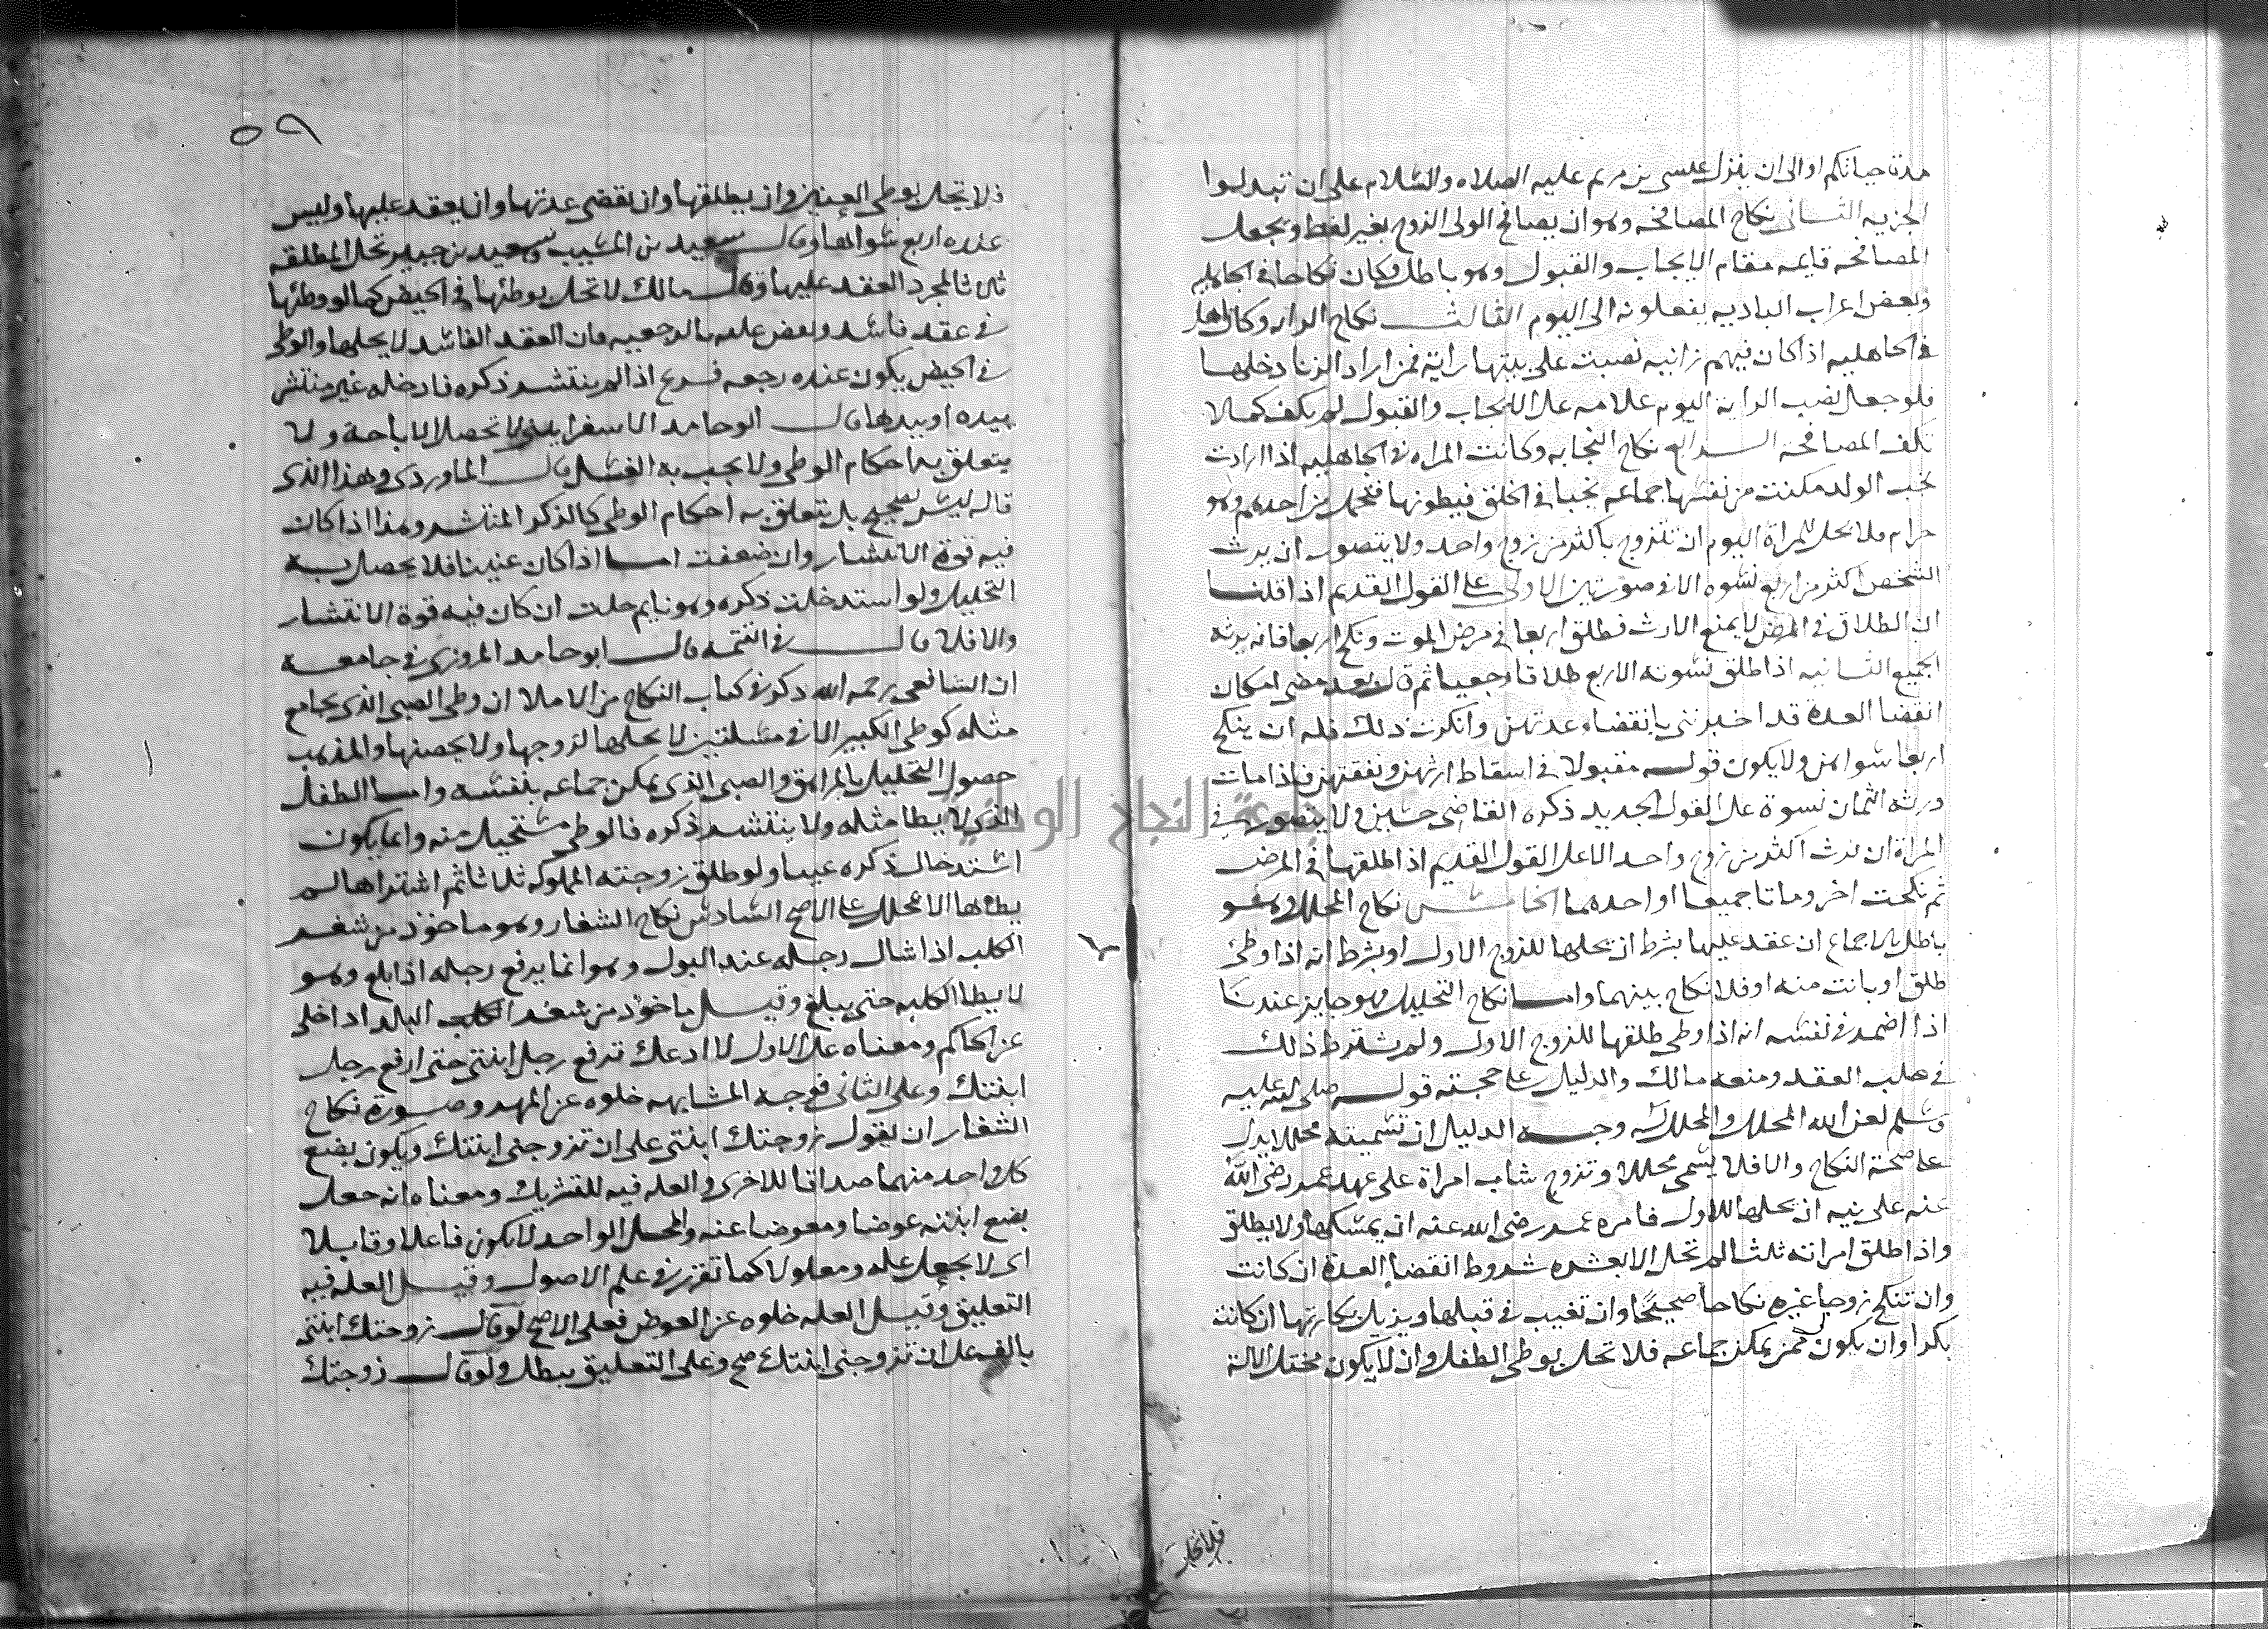 مدة حياتكم او الى ان ينزل عيسى بن مريم عليه الصلاه والسلام على ان تبدلوا
الجزيه الثانى نكاح المصافحه وهو ان يصافح الولى الزوج بغير لفظ ويجعل
المصافحه قايمه مقام الايجاب والقبول وهو باطل وكان نكاحا فى الجاهليه
وبعض اعراب الباديه يفعلونه الى اليوم الثالث نكاح الرايه وكان اهل
فى الجاهليه اذا كان فيهم زانيه نصبت على بيتها راية فمن اراد الزنا دخلها
فلو جعل نصب الراية اليوم علامه على الايجاب والقبول لم يكف كما لا
تكف المصافحه الرابع نكاح النجابه وكانت المراه فى الجاهليه اذا ارادت
نجب الولد مكنت من نفسها جماعه نجبا فى الخلق فيطونها فتحمل من احدهم وهو
حرام فلا يحل للمراة اليوم ان تتزوج باكثر من زوج واحد ولا يتصور ان يرث
الشخص اكثر من اربع نسوه الا فى صورتين الاولى على القول القديم اذا قلنا
ان الطلاق فى المرض لا يمنع الارث فطلق اربعا فى مرض الموت ونكح اربعا فانه يرثه
الجميع الثانيه اذا طلق نسوته الاربع طلاقا رجعيا ثم قال بعد مضى امكان
انقضا العدة قد اخبرننى بانقضاء عدتهن وانكرت ذلك فله ان ينكح
اربعا سواهن ولا يكون قوله مقبولا فى اسقاط ارثهن ونفقتهن فاذا مات
ورثه الثمان نسوة على القول الجديد ذكره القاضى حسين ولا يتصور فى
المراة ان ترث اكثر من زوج واحد الا على القول القديم اذا طلقها فى المرض
ثم نكحت اخر وماتا جميعا او احدهما الخامس نكاح المحلل وهو
باطل بالاجماع ان عقد عليها بشرط ان يحلها للزوج الاول او بشرط انه اذا وطئ
طلق او بانت منه او فلا نكاح بينهما واما نكاح التحليل وهو جايز عندنا
اذا اضمر فى نفسه انه اذا وطى طلقها للزوج الاول ولم يشترط ذلك
فى صلب العقد ومنعه مالك والدليل على صحته قوله صلى الله عليه
وسلم لعن الله المحلل والمحلل له وجه الدليل ان تسميته محللا يدل
على صحة النكاح والا فلا يسمى محللا وتزوج شاب امراة على عهد عمر رضى الله
عنه على نيه ان يحلها للاول فامره عمر رضى الله عنه ان يمسكها ولا يطلق
واذا طلق امراته ثلثا لم تحل الا بعشره شروط انقضا العدة ان كانت
وان تنكح زوجا غيره نكاحا صحيحا وان تغيب فى قبلها ويزيل بكارتها ان كانت
بكرا وان يكون ممن يمكن جماعه فلا تحل بوطى الطفل وان لا يكون مختل الالة
فلا تحل
٥٩
فلا تحل بوطى العنين وان يطلقها وان تقضى عدتها وان يعقد عليها وليس
عنده اربع سواها وقال سعيد بن المسيب وسعيد بن جبير تحل المطلقه
ثلاثا بمجرد العقد عليها وقال مالك لا تحل بوطئها فى الحيض كما لو وطئها
فى عقد فاسد ونقض عليه بالرجعيه فان العقد الفاسد لا يحلها والوطى
فى الحيض يكون عنده رجعه فرع اذا لم ينتشر ذكره فادخله غير منتشر
بيده او بيدها قال ابو حامد الاسفراينى لا تحصل الاباحة ولا
يتعلق به احكام الوطى ولا يجب به الغسل قال الماوردى وهذا الذى
قاله ليس بصحيح بل يتعلق به احكام الوطى كالذكر المنتشر وهذا اذا كان
فيه قوة الانتشار وان ضعفت اما اذا كان عنينا فلا يحصل به
التحليل ولو استدخلت ذكره وهو نايم حلت ان كان فيه قوة الانتشار
والا فلا قال فى التتمه قال ابو حامد المروزى فى جامعه
ان الشافعى رحمه الله ذكر فى كتاب النكاح من الاملا ان وطى الصبى الذى يجامع
مثله كوطى الكبير الا فى مسلتين لا يحلها لزوجها ولا يحصنها والمذهب
حصول التحليل بالمراهق والصبى الذى يمكن جماعه بنفسه واما الطفل
الذى لا يطا مثله ولا ينتشر ذكره فالوطى مستحيل منه وانما يكون
استدخال ذكره عبثا ولو طلق زوجته المملوكه ثلاثا ثم اشتراها لم
يطاها الا بمحلل على الاصح السادس نكاح الشغار وهو ماخوذ من شغر
الكلب اذا شال رجله عند البول وهو انما يرفع رجله اذا بلغ وهو
لا يطا الكلبه حتى يبلغ وقيل ماخوذ من شغر الكلب البلد اذا خلى
عن الحاكم ومعناه على الاول لا ادعك ترفع رجل ابنتى حتى ارفع رجل
ابنتك وعلى الثانى فوجه المشابهه خلوه عن المهر وصورة نكاح
الشغار ان يقول زوجتك ابنتى على ان تزوجنى ابنتك ويكون بضع
كل واحد منهما صداقا للاخرى والعله فيه للتشريك ومعناه انه جعل
بضع ابنته عوضا ومعوضا عنه والمحل الواحد لا يكون فاعلا وقابلا
اى لا يجعل عله ومعلولا كما تقرر فى علم الاصول وقيل العله فيه
التعليق وقيل العله خلوه عن العوض فعلى الاصح لو قال زوجتك ابنتى
بالف على ان تزوجنى ابنتك صح وعلى التعليق يبطل ولو قال زوجتك
جامعة النجاح الوطنية